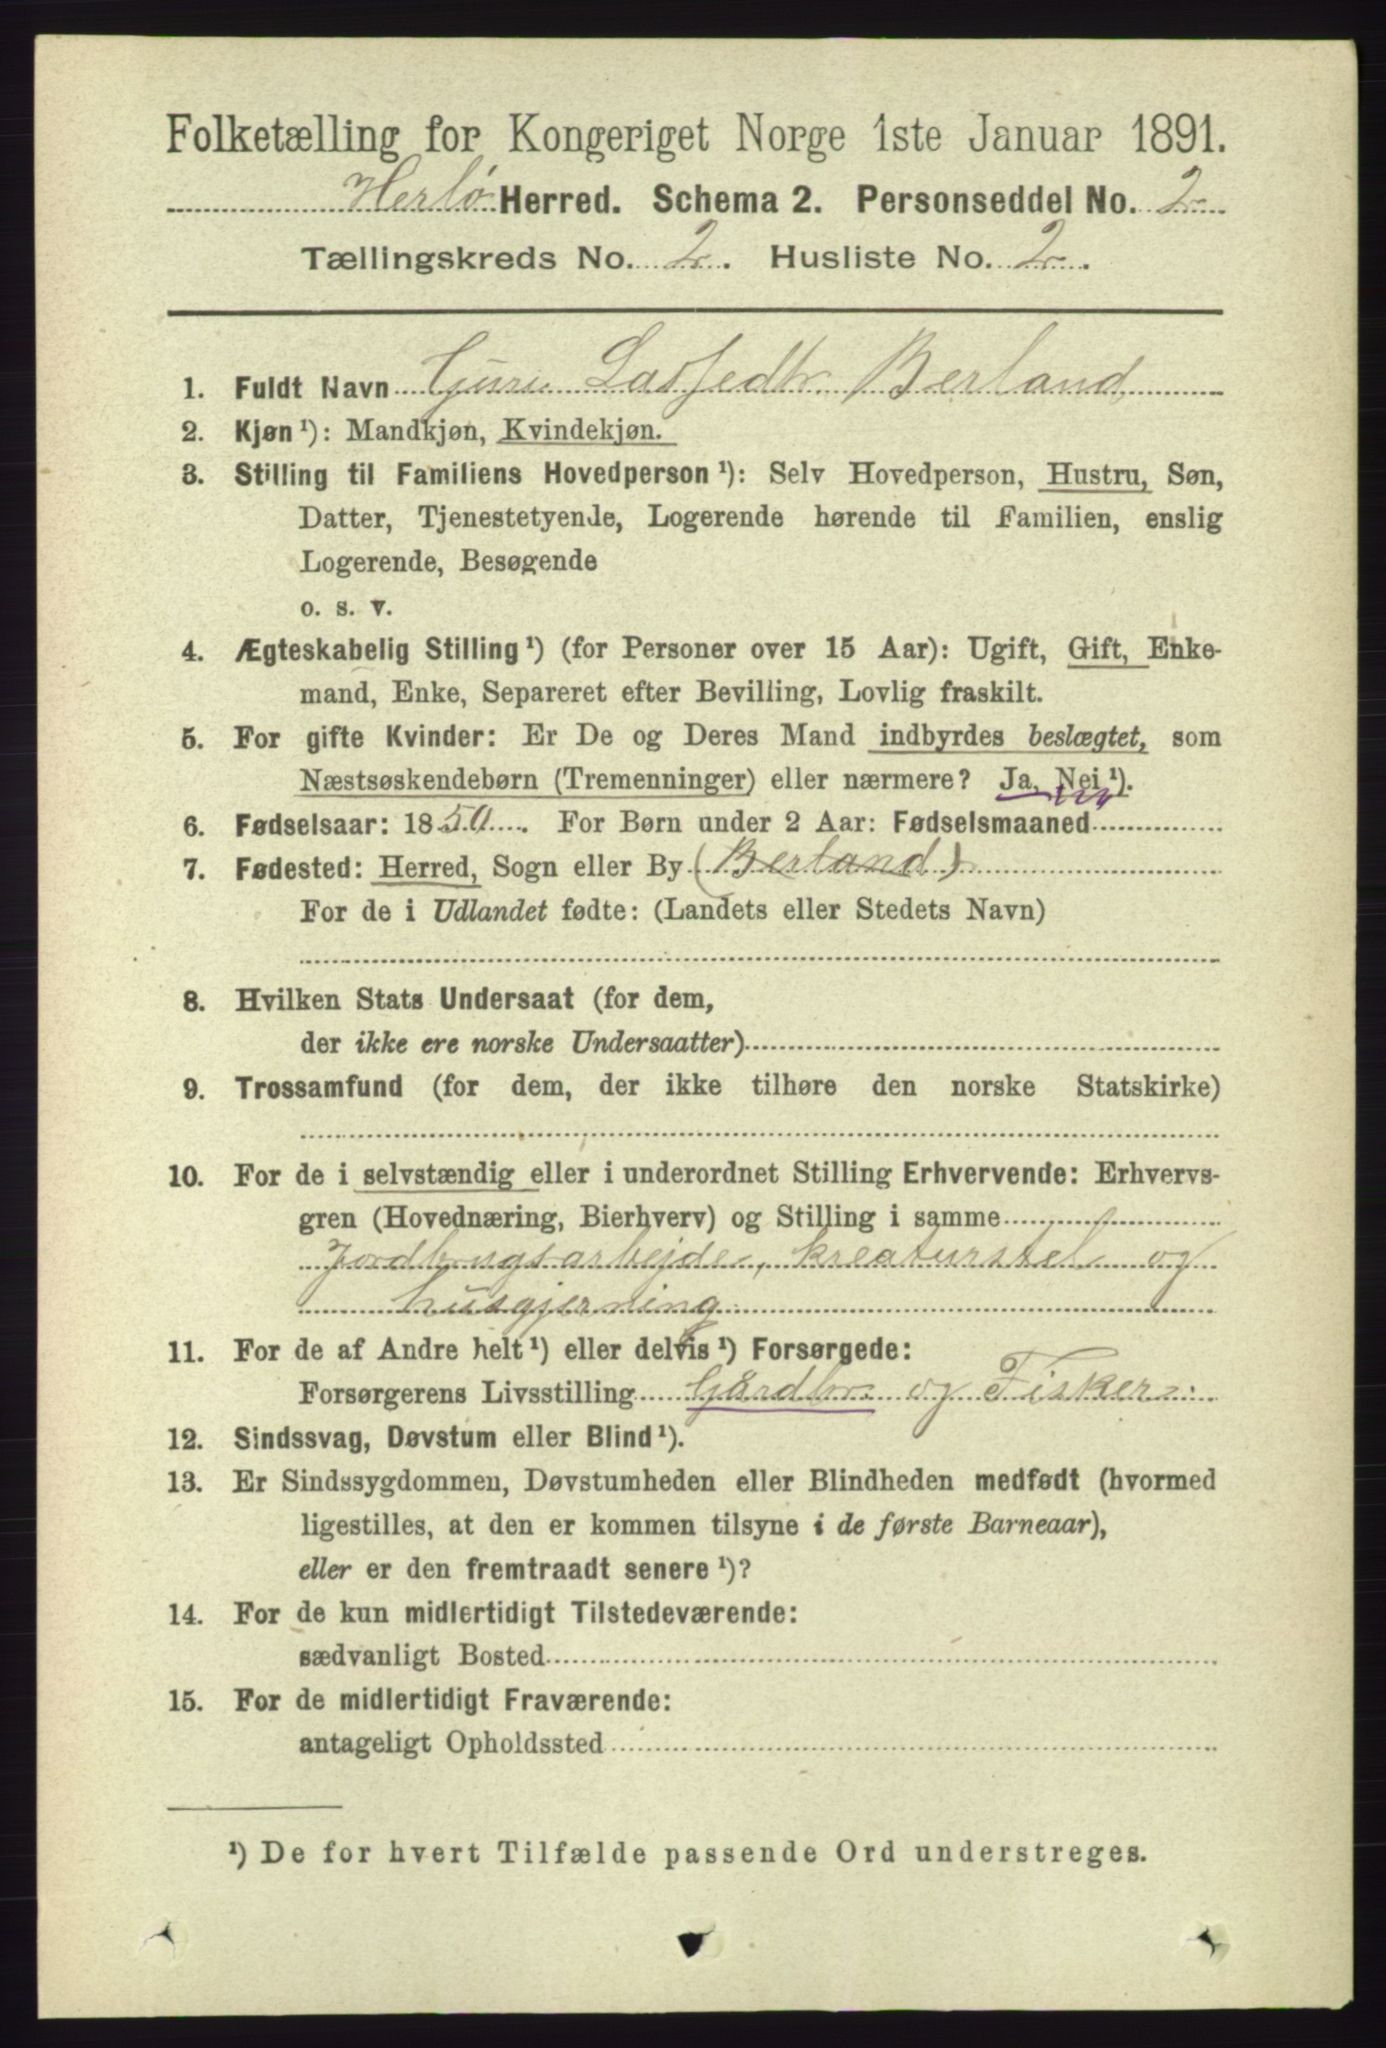 Folketælling for Kongeriget Norge 1ste Januar 1891.
Herlø Herred. Schema 2. Personseddel No. 2
Tællingskreds No. 2. Husliste No. 2.
1. Fuldt Navn Guri Lassedtr. Berland
2. Kjøn ¹): Mandkjøn, Kvindekjøn.
3. Stilling til Familiens Hovedperson ¹): Selv Hovedperson, Hustru, Søn,
Datter, Tjenestetyende, Logerende hørende til Familien, enslig
Logerende, Besøgende
o. s. v.
4. Ægteskabelig Stilling ¹) (for Personer over 15 Aar): Ugift, Gift, Enke-
mand, Enke, Separeret efter Bevilling, Lovlig fraskilt.
5. For gifte Kvinder: Er De og Deres Mand indbyrdes beslægtet, som
Næstsøskendebørn (Tremenninger) eller nærmere? Ja, Nei ¹).
6. Fødselsaar: 1850. For Børn under 2 Aar: Fødselsmaaned
7. Fødested: Herred, Sogn eller By (Berland)
For de i Udlandet fødte: (Landets eller Stedets Navn)
8. Hvilken Stats Undersaat (for dem,
der ikke ere norske Undersaatter)
9. Trossamfund (for dem, der ikke tilhøre den norske Statskirke)
10. For de i selvstændig eller i underordnet Stilling Erhvervende: Erhvervs-
gren (Hovednæring, Bierhverv) og Stilling i samme
Jordbrugsarbejde, kreaturstel og
husgjerning
11. For de af Andre helt ¹) eller delvis ¹) Forsørgede:
Forsørgerens Livsstilling Gårdbr. og Fisker.
12. Sindssvag, Døvstum eller Blind ¹).
13. Er Sindssygdommen, Døvstumheden eller Blindheden medfødt (hvormed
ligestilles, at den er kommen tilsyne i de første Barneaar),
eller er den fremtraadt senere ¹)?
14. For de kun midlertidigt Tilstedeværende:
sædvanligt Bosted
15. For de midlertidigt Fraværende:
antageligt Opholdssted
¹) De for hvert Tilfælde passende Ord understreges.